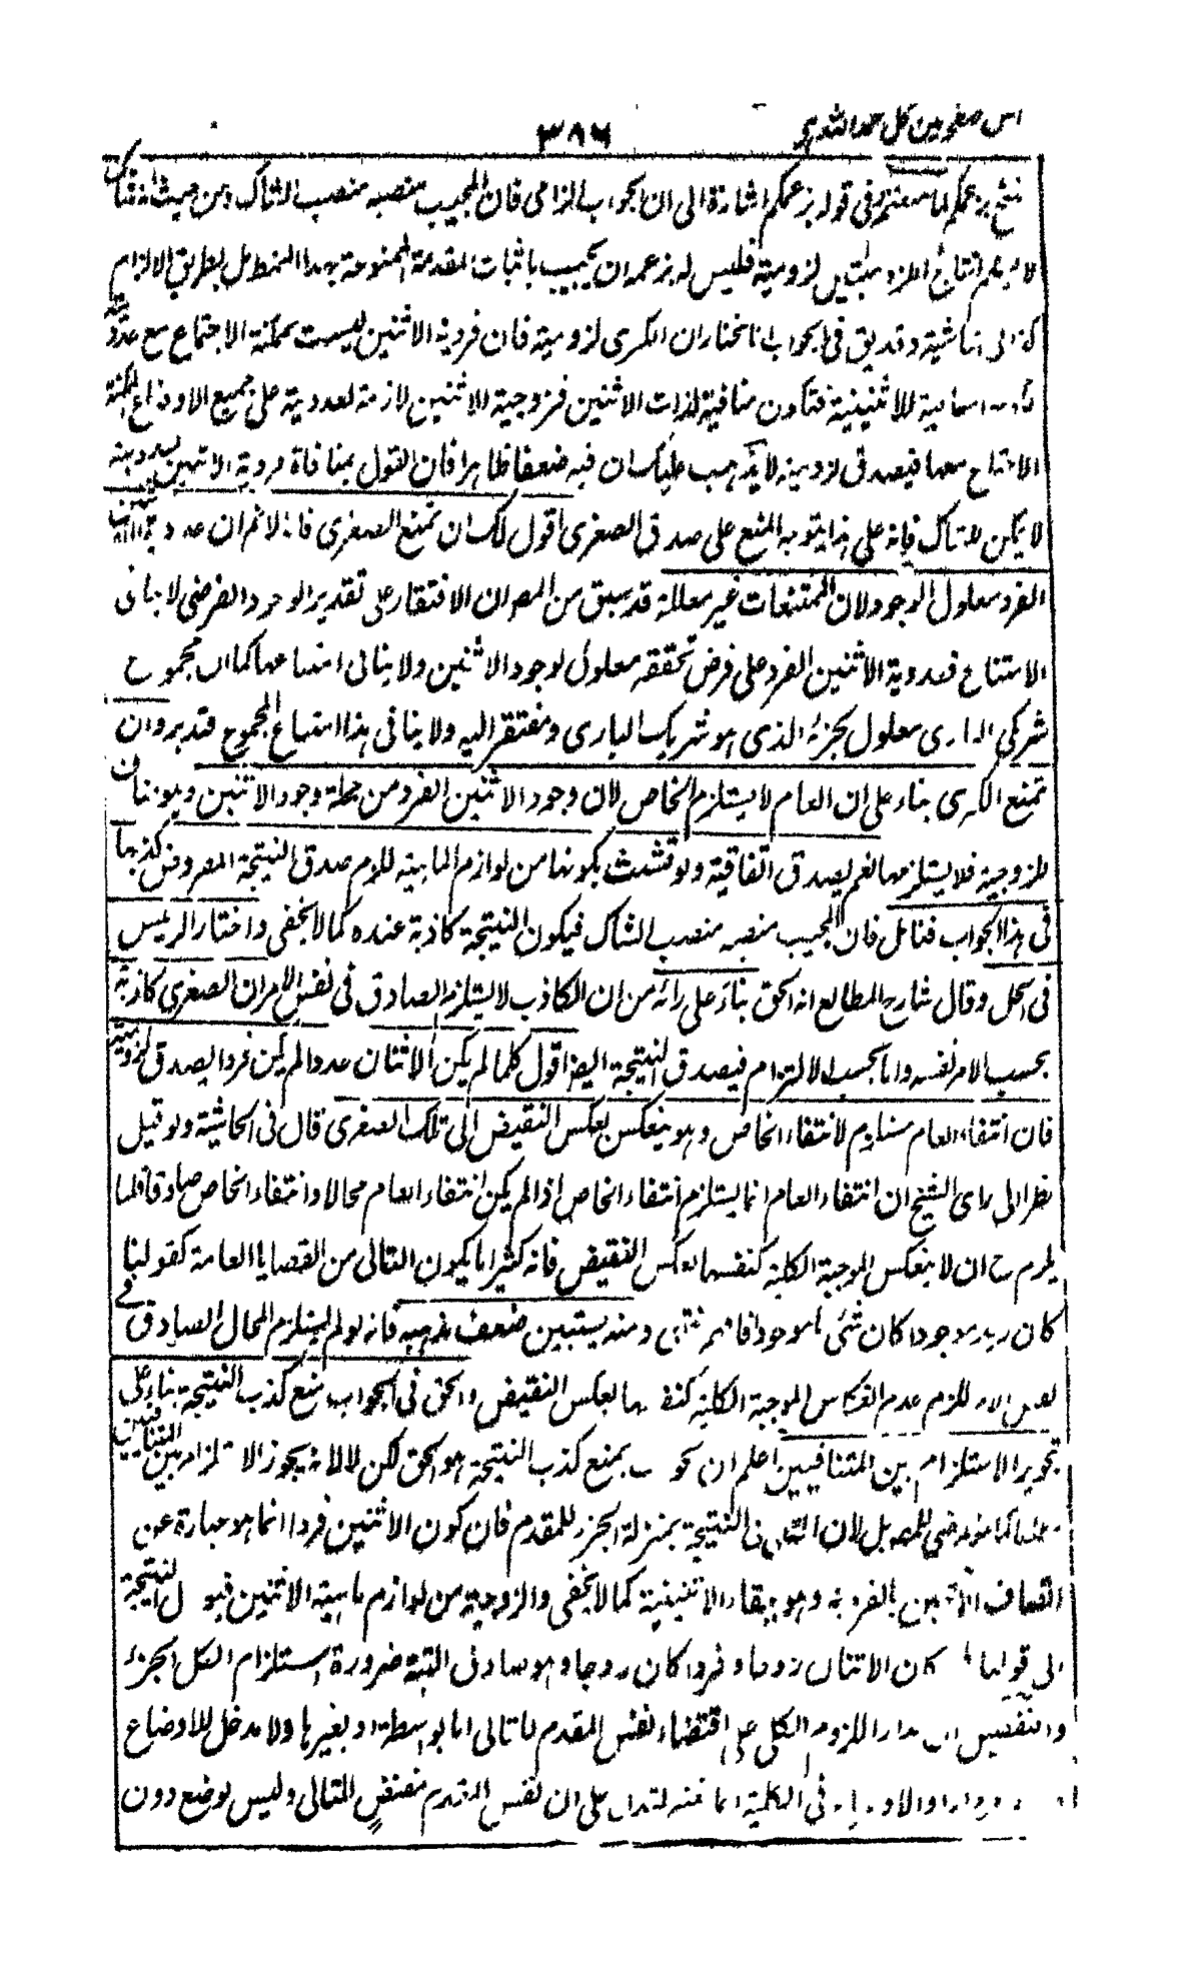 اس صفحه مین کل حمد الله ہی
۳۸۶
بزعمکم لما معتزم وفی قوله بزعمکم اشارة الی ان الجواب الزامی فان المجیب منصبه منصب الشاک ومن حیث انه شاک
لا یعلم انتاج اللزومیتین لزومیة فلیس له بزعمه ان یجیب باثبات المقدمة الممنوعة بهذا النمط بل بطریق الالزام
کذا فی الحاشیة وقدیق فی الجواب انا نختار ان الکبری لزومیة فان فردیة الاثنین لیست بممکنة الاجتماع مع عددیته
للاثنینیة فتکون منافیة لذات الاثنین فزوجیة الاثنین لازمة لعددیته علی جمیع الاوضاع الممکنة
الاجتماع معها فیصدق لزومیة لا یذهب علیک ان فیه ضعفا ظاهرا فان القول بمنافاة فردیة الاثنین
لا یمکن للشاک فإنه علی هذا یتوجه المنع علی صدق الصغری اقول لک ان تمنع الصغری فانا لا نم ان عددیة
الفرد معلول الوجود لان الممتنعات غیر معللة قد سبق من المص ان الافتقار علی تقدیر الوجود الفرضی لا ینافی
الامتناع فعددیة الاثنین الفرد علی فرض تحققه معلول لوجود الاثنین ولا ینافی امتناعها کما ان مجموع
شرکی الباری معلول لجزئه الذی هو شریک الباری ومفتقر الیه ولا ینافی هذا امتناع المجموع فتدبر وان
تمنع الکبری بناء علی ان العام لا یستلزم الخاص لان وجود الاثنین الفرد من جملة وجود الاثنین وهو مناف
للزوجیة فلا یستلزمها نعم یصدق اتفاقیة ولو تشبث بکونها من لوازم الماهیة للزم صدق النتیجة المفروض کذبها
فی هذا الجواب فتامل فان المجیب منصبه منصب الشاک فیکون النتیجة کاذبة عنده کما لا یخفی واختار الرئیس
فی الحل وقال شارح المطالع انه الحق بناء علی رائه من ان الکاذب لا یستلزم الصادق فی نفس الامر ان الصغری کاذبة
بحسب الامر نفسه واما بحسب الالتزام فیصدق النتیجة ایضا اقول کلما لم یکن الاثنان عددا لم یکن فردا یصدق لزومیة
فان انتفاء العام مستلزم لانتفاء الخاص وهو ینعکس بعکس النقیض الی تلک الصغری قال فی الحاشیة ولو قیل
نظرا الی رای الشیخ ان انتفاء العام انما یستلزم انتفاء الخاص اذا لم یکن انتفاء العام محالا وانتفاء الخاص صادقا قلنا
یلزم ح ان لا ینعکس الموجبة الکلیة کنفسها بعکس النقیض فانه کثیرا ما یکون التالی من القضایا العامة کقولنا
کان زید موجودا کان شئ ما موجودا فافهم انتهی ومنه یستبین ضعف مذهبه فانه لو لم یستلزم المحال الصادق فی
نفس الامر للزم عدم انعکاس الموجبة الکلیة کنفسها بعکس النقیض والحق فی الجواب منع کذب النتیجة بناء علی
تجویز الاستلزام بین المتنافیین اعلم ان الجواب بمنع کذب النتیجة هو الحق لکن لا لانه یجوز الاستلزام بین المتنافیین
کما هو مرضی للمص بل لان التالی فی النتیجة بمنزلة الجزء للمقدم فان کون الاثنین فردا انما هو عبارة عن
اتصاف الاثنین بالفردیة وهو ببقاء الاثنینیة کما لا یخفی والزوجیة من لوازم ماهیة الاثنین فیؤل النتیجة
الی قولنا کان الاثنان زوجا وفردا کان زوجا وهو صادق البتة ضرورة استلزام الکل الجزء
والتفصیل ان مدار اللزوم الکلی علی اقتضاء نفس المقدم للتالی اما بواسطة او بغیرها ولا مدخل للاوضاع
فی الکلیة لتدل علی ان نفس المقدم مقتض للتالی ولیس لوضع دون